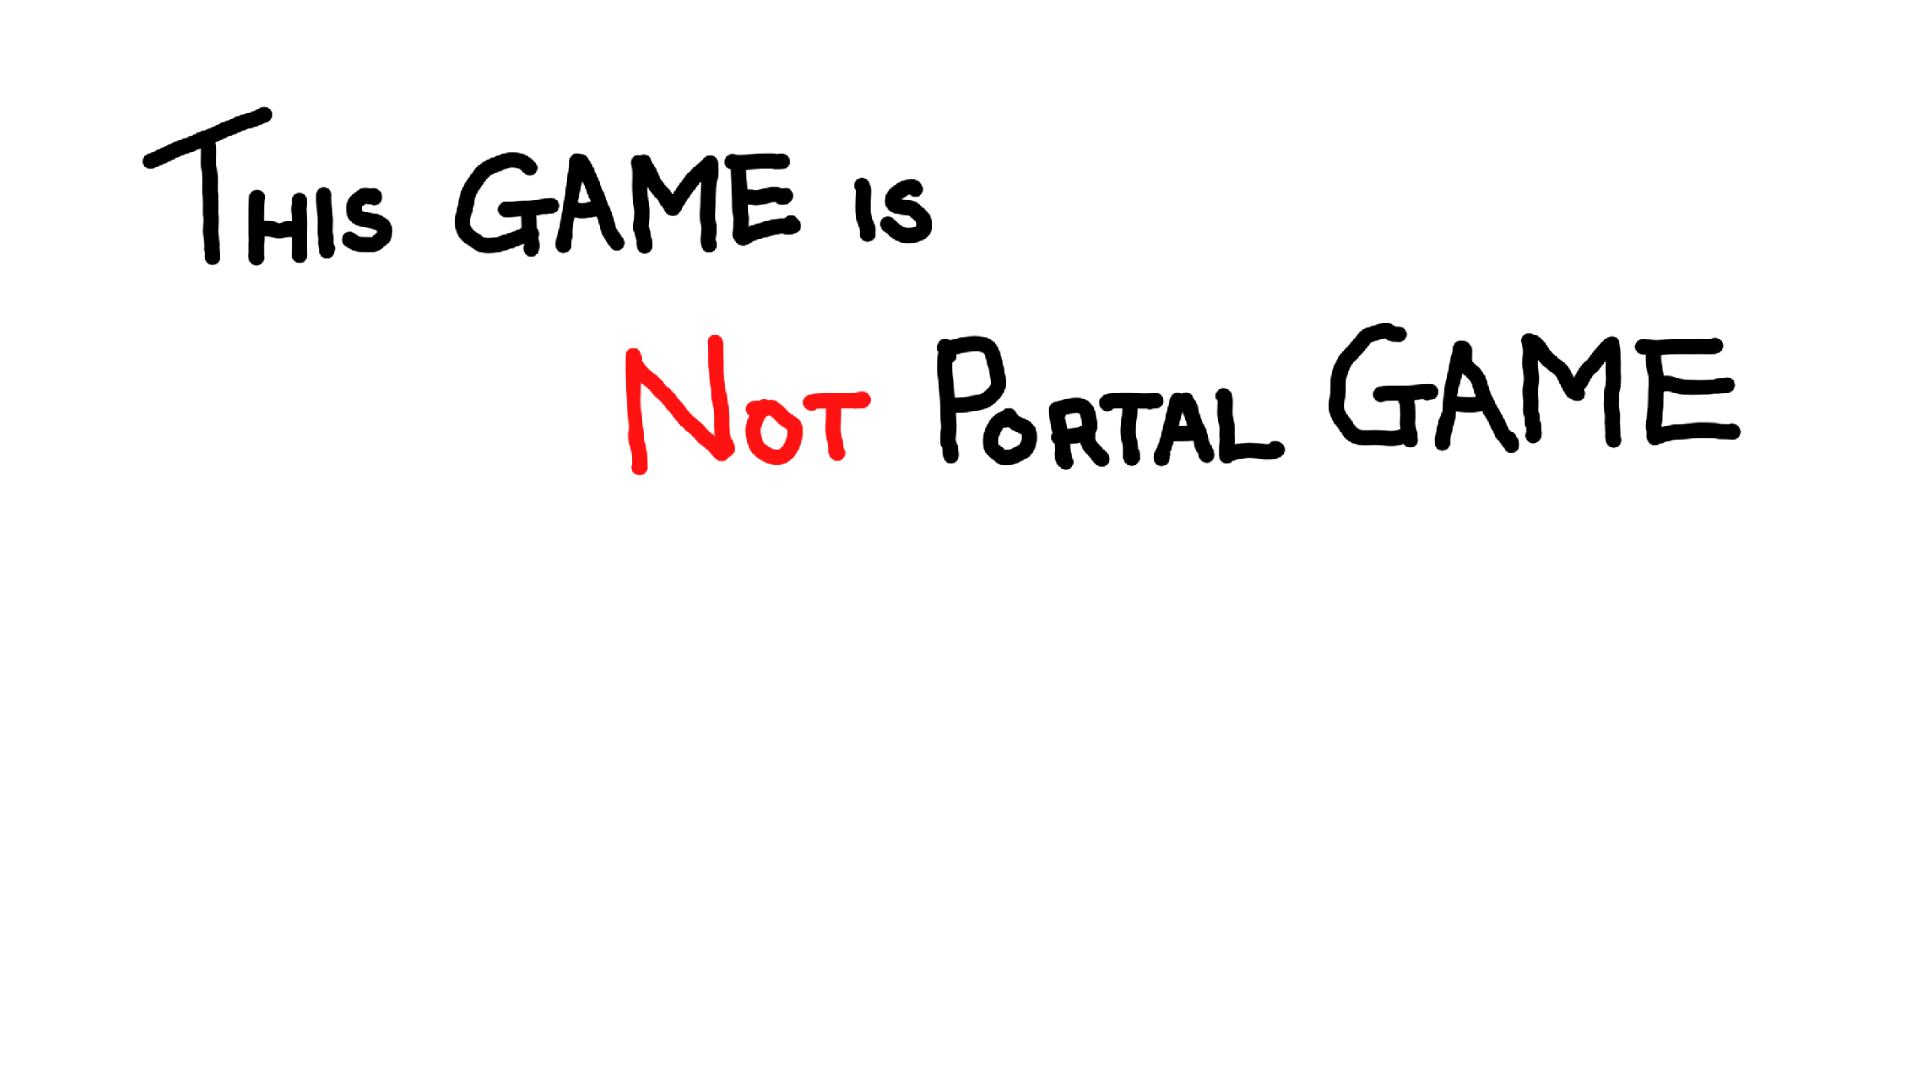 THIS GAME IS
NOT PORTAL GAME